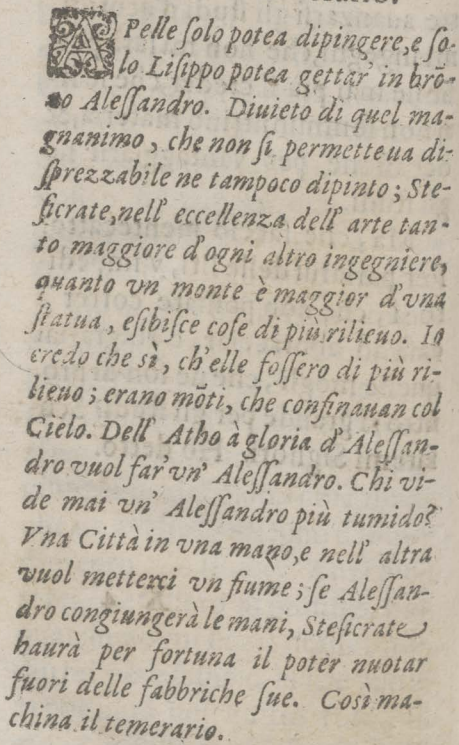 APelle ſolo potea dipingere, e ſo-
lo Liſippo potea gettar' in brō-
zo Aleſſandro. Diuieto di quel ma-
gnanimo, che non ſi permetteua di-
ſprezzabile ne tampoco dipinto; Ste-
ſicrate, nell' eccellenza dell' arte tan-
to maggiore d'ogni altro ingegniere,
quanto vn monte è maggior d'vna
ſtatua, eſibiſce coſe di più rilieuo. Io
credo che sì, ch'elle foſſero di più ri-
lieuo; erano mōti, che confinauan col
Cielo. Dell' Atho à gloria d' Aleſſan-
dro vuol far' vn' Aleſſandro. Chi vi-
de mai vn' Aleſſandro più tumido?
Vna Città in vna mano, e nell' altra
vuol metterci vn fiume; ſe Aleſſan-
dro congiungerà le mani, Steſicrate
haurà per fortuna il poter nuotar
fuori delle fabbriche ſue. Così ma-
china il temerario.